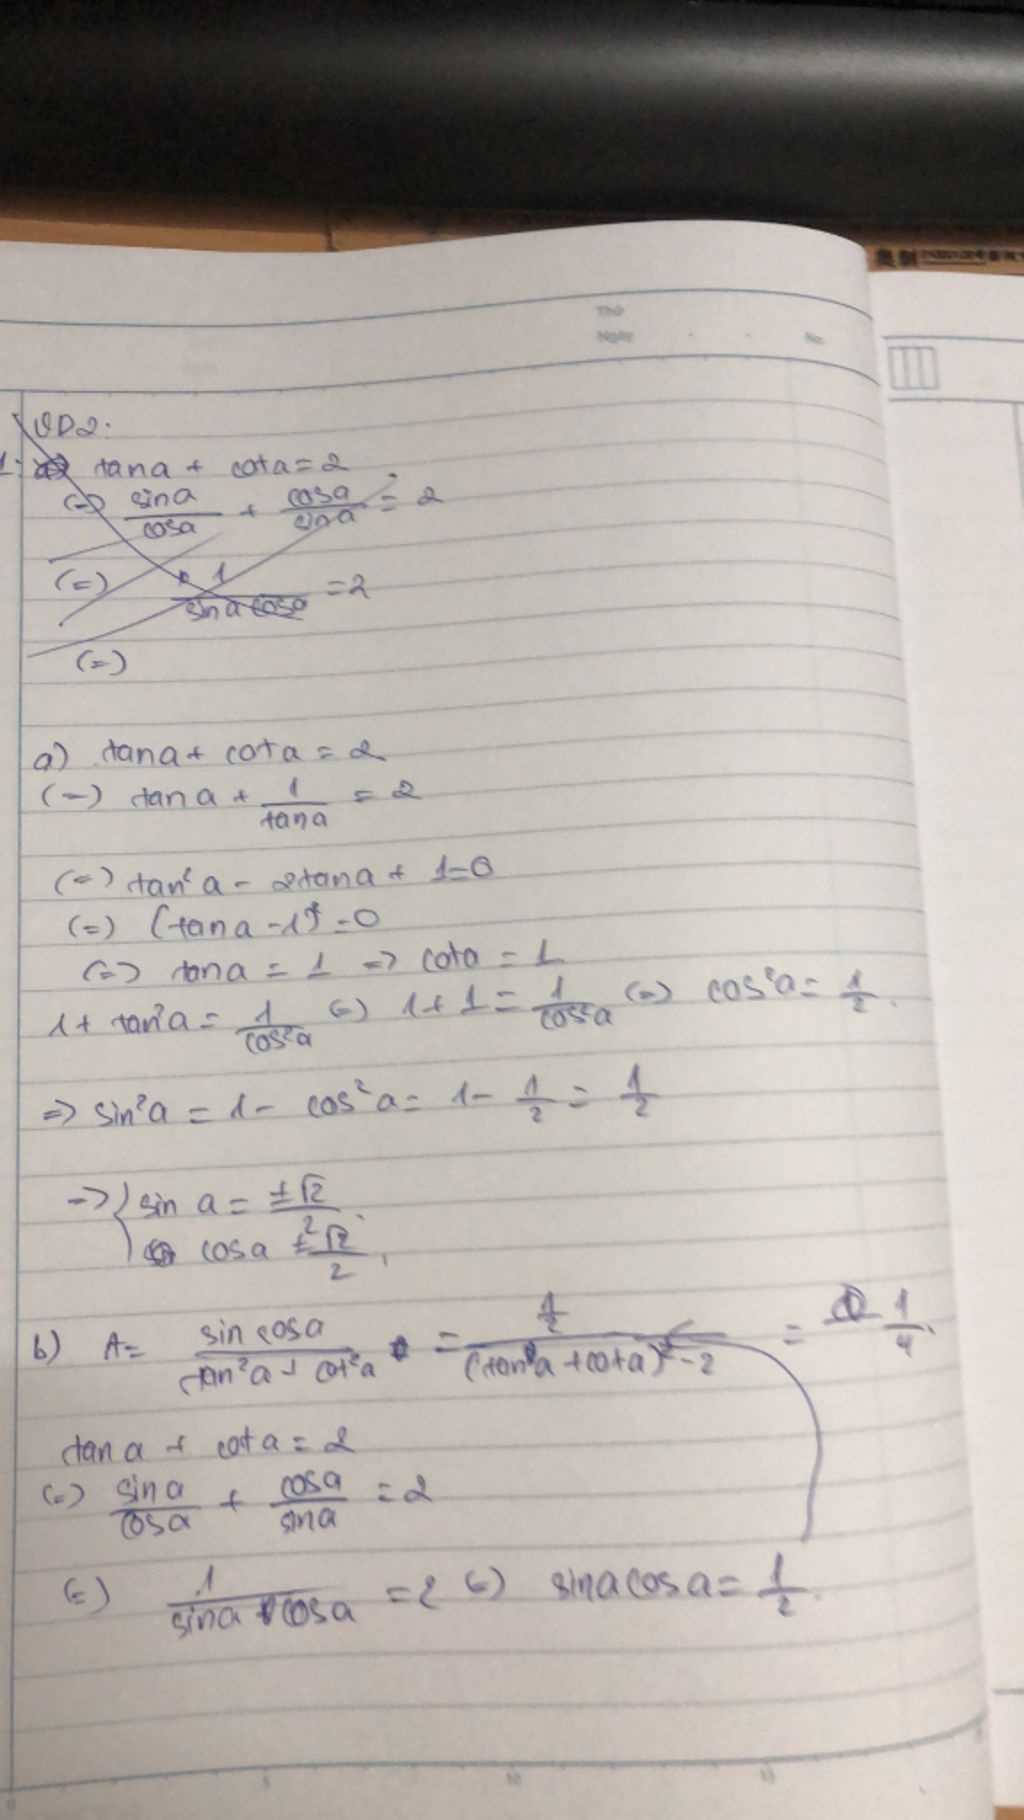 Thứ
Ngày . . No.
VD2:
1: tana + cota = 2
(=) sina/cosa + cosa/sina = 2
(=) 1/(sinacosa) = 2
(=)
a) tana + cota = 2
(=) tana + 1/tana = 2
(=) tan²a - 2tana + 1 = 0
(=) (tana - 1)² = 0
(=) tana = 1 => cota = 1
1 + tan²a = 1/cos²a (=) 1 + 1 = 1/cos²a (=) cos²a = 1/2.
=> sin²a = 1 - cos²a = 1 - 1/2 = 1/2
=> { sin a = ±√2/2.
cosa ±√2/2.
b) A = sin cosa/(tan²a + cot²a) = (1/2)/((tana + cota)² - 2) = 1/4.
tana + cota = 2
(=) sina/cosa + cosa/sina = 2
(=) 1/(sina cosa) = 2 (=) sinacosa = 1/2.
0 5 10 15